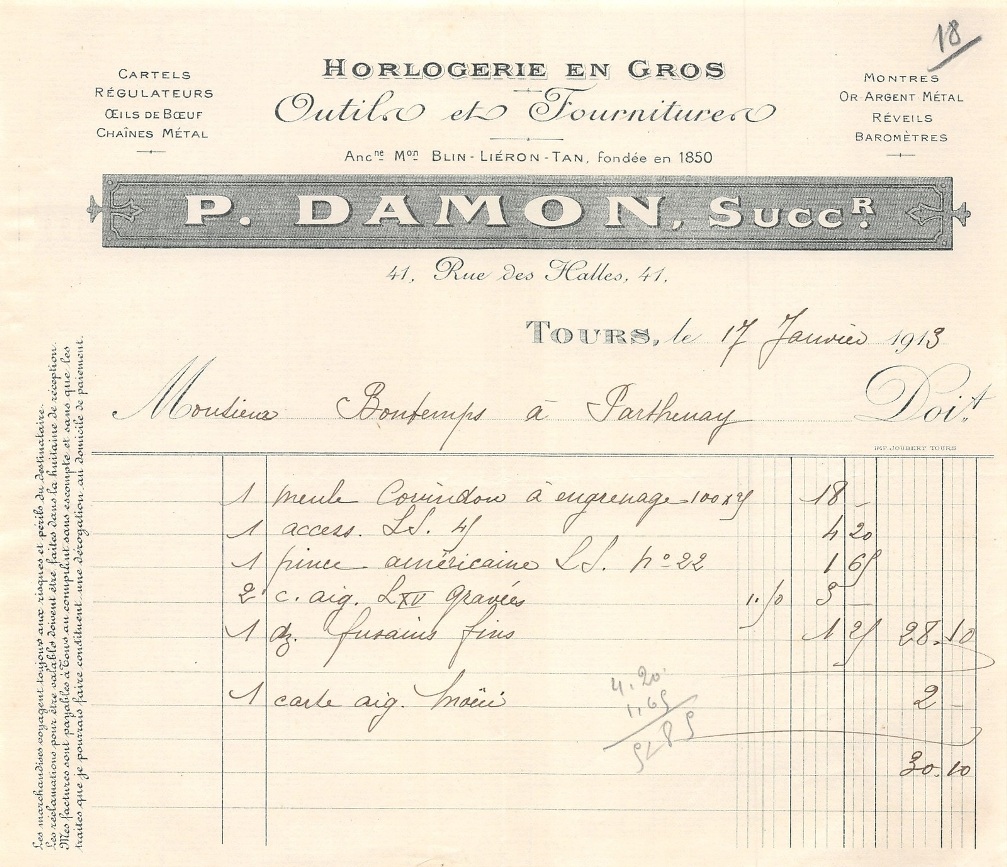 18
CARTELS
RÉGULATEURS
ŒILS DE BŒUF
CHAÎNES MÉTAL
HORLOGERIE EN GROS
Outils et Fournitures
Ancne Mon BLIN-LIÉRON-TAN, fondée en 1850
MONTRES
OR ARGENT MÉTAL
RÉVEILS
BAROMÈTRES
P. DAMON, SUCCR.
41, Rue des Halles, 41.
TOURS, le 17 Janvier 1913
Monsieur Bontemps à Parthenay Doit
IMP. JOUBERT TOURS
1 meule Corindon à engrenage 100 x 25 18 -
1 access. L.S. 45 4 20
1 pince américaine L.S. No 22 1 65
2 c. aig. LXV gravées 1.50 3 -
1 dz fusains fins 1 25 28.10
1 carte aig. 2 -
4.20
1.65
5 85
30.10
Les marchandises voyagent toujours aux risques et périls du destinataire.
Les réclamations pour être valables doivent être faites dans la huitaine de réception.
Mes factures sont payables à Tours au comptant sans escompte et sans que les
traites que je pourrais faire constituent une dérogation au domicile de paiement.